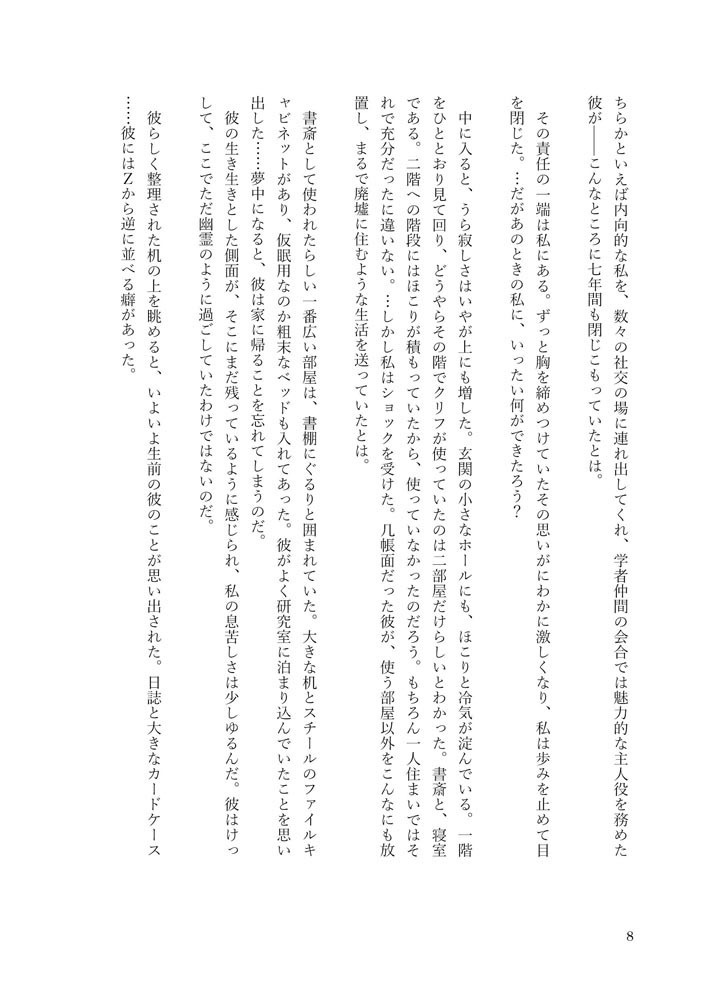 ちらかといえば内向的な私を、数々の社交の場に連れ出してくれ、学者仲間の会合では魅力的な主人役を務めた
彼が――こんなところに七年間も閉じこもっていたとは。
その責任の一端は私にある。ずっと胸を締めつけていたその思いがにわかに激しくなり、私は歩みを止めて目
を閉じた。…だがあのときの私に、いったい何ができたろう？
中に入ると、うら寂しさはいやが上にも増した。玄関の小さなホールにも、ほこりと冷気が淀んでいる。一階
をひととおり見て回り、どうやらその階でクリフが使っていたのは二部屋だけらしいとわかった。書斎と、寝室
である。二階への階段にはほこりが積もっていたから、使っていなかったのだろう。もちろん一人住まいではそ
れで充分だったに違いない。…しかし私はショックを受けた。几帳面だった彼が、使う部屋以外をこんなにも放
置し、まるで廃墟に住むような生活を送っていたとは。
書斎として使われたらしい一番広い部屋は、書棚にぐるりと囲まれていた。大きな机とスチールのファイルキ
ャビネットがあり、仮眠用なのか粗末なベッドも入れてあった。彼がよく研究室に泊まり込んでいたことを思い
出した……夢中になると、彼は家に帰ることを忘れてしまうのだ。
彼の生き生きとした側面が、そこにまだ残っているように感じられ、私の息苦しさは少しゆるんだ。彼はけっ
して、ここでただ幽霊のように過ごしていたわけではないのだ。
彼らしく整理された机の上を眺めると、いよいよ生前の彼のことが思い出された。日誌と大きなカードケース
……彼にはＺから逆に並べる癖があった。
8